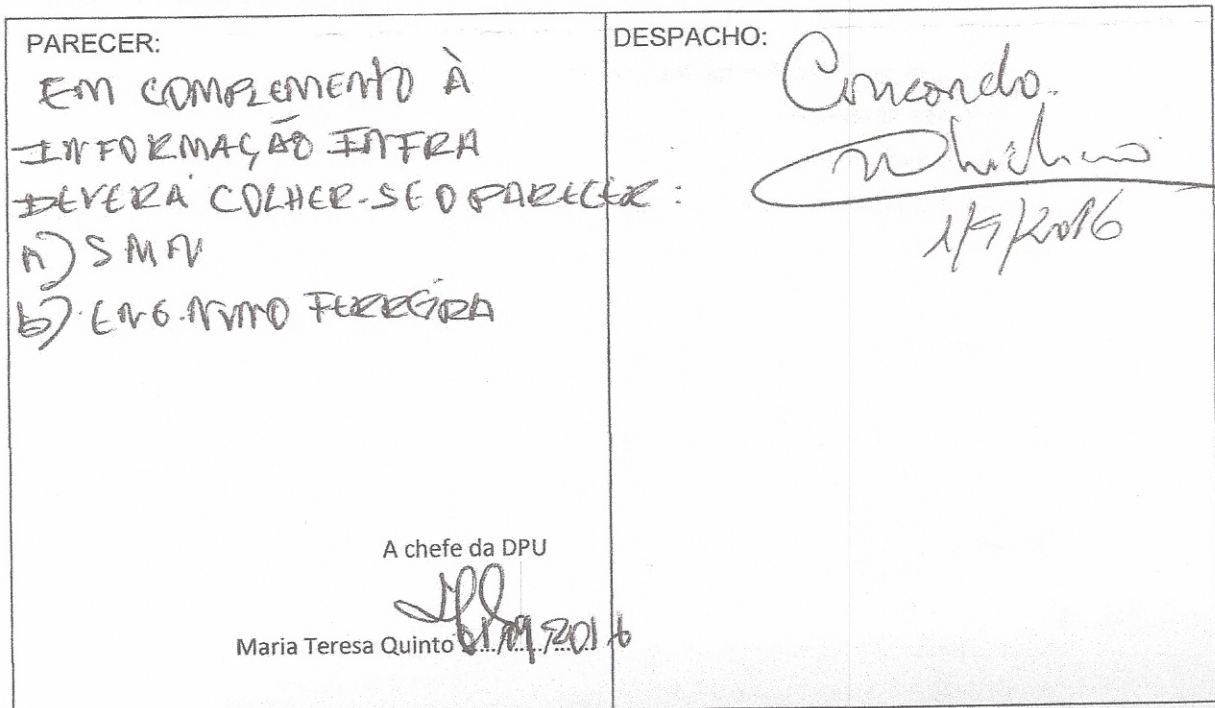 PARECER:
EM COMPLEMENTO À
INFORMAÇÃO INFRA
DEVERÁ COLHER-SE O PARECER:
a) SMN
b) ENG. NUNO FERREIRA
A chefe da DPU
Maria Teresa Quinto 01/09/2016
DESPACHO:
Concordo.
1/9/2016